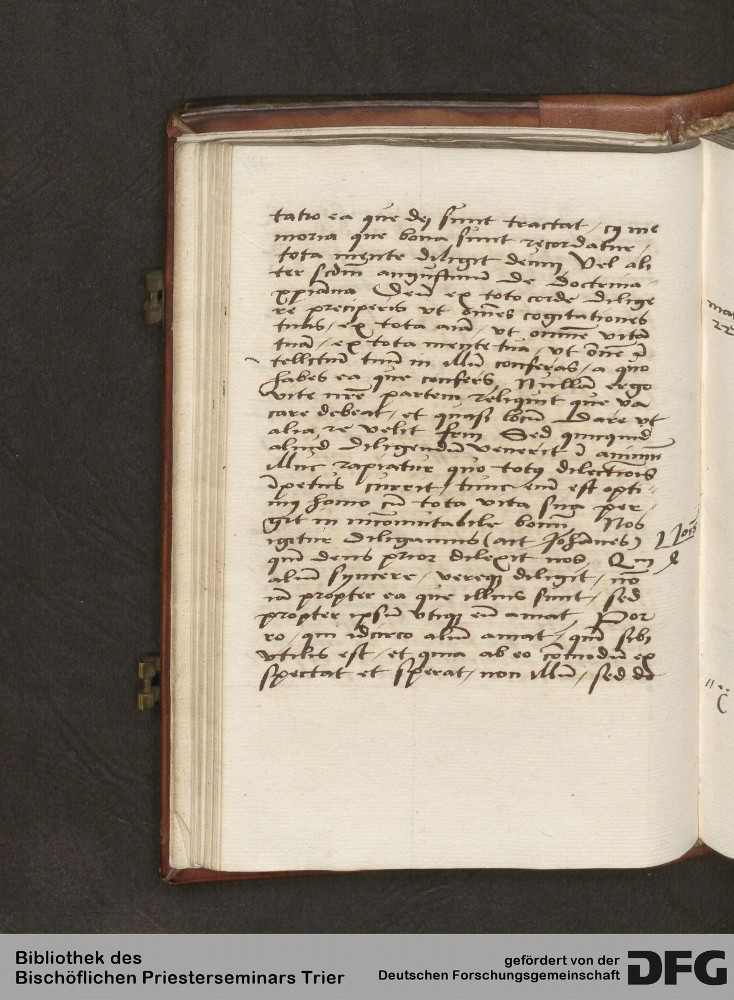 tatio ea que dej sunt tractat / cũ me
moria que bona sunt recordatur /
tota mente diligit deum Vel ali
ter scdm augustinũ De doctrina
xpiana Deũ ex toto corde dilige
re preciperis vt om̃es cogitationes
tuas / ex tota aĩa / vt omnem vitã
tuã / ex tota mente tua / vt om̃e ĩ
tellectum tuũ in illũ conferas / a quo
habes ea que confers. Nullã ergo
vite nr̃e partem reliquit que va
care debeat / et quasi locũ dare vt
alia re velit frui Sed quicquid
aliud diligendũ venerit ĩ animũ
illuc rapiatur quo totus dilectionis
ĩpetus currit / tunc enĩ est opti
mus homo cũ tota vita sua per
git in incõmutabile bonũ Nos
igitur diligamus (ait Johannes)
qm̃ deus prior dilexit nos. Qui
aliũ syncere / vereque diligit / nõ
iã propter ea que illius sunt / sed
propter ipsũ vtique eũ amat Por
ro / qui idcirco aliũ amat / qm̃ sibi
vtilis est / et quia ab eo cõmodũ ex
spectat et sperat / non illũ / sed
Bibliothek des
Bischöflichen Priesterseminars Trier
gefördert von der
Deutschen Forschungsgemeinschaft
DFG